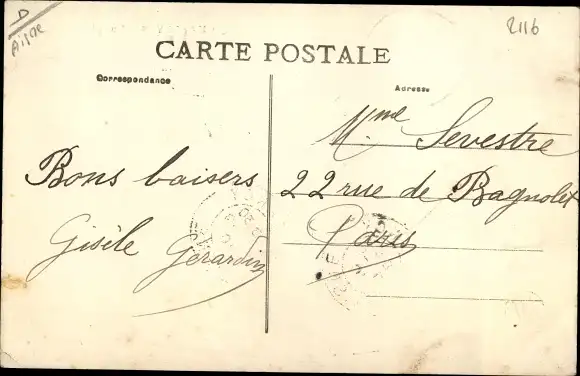 D
Aisne
2116
CARTE POSTALE
Correspondance
Adresse
Mme Sevestre
Bons baisers
22 rue de Bagnolet
Gisèle Gerardin
Paris